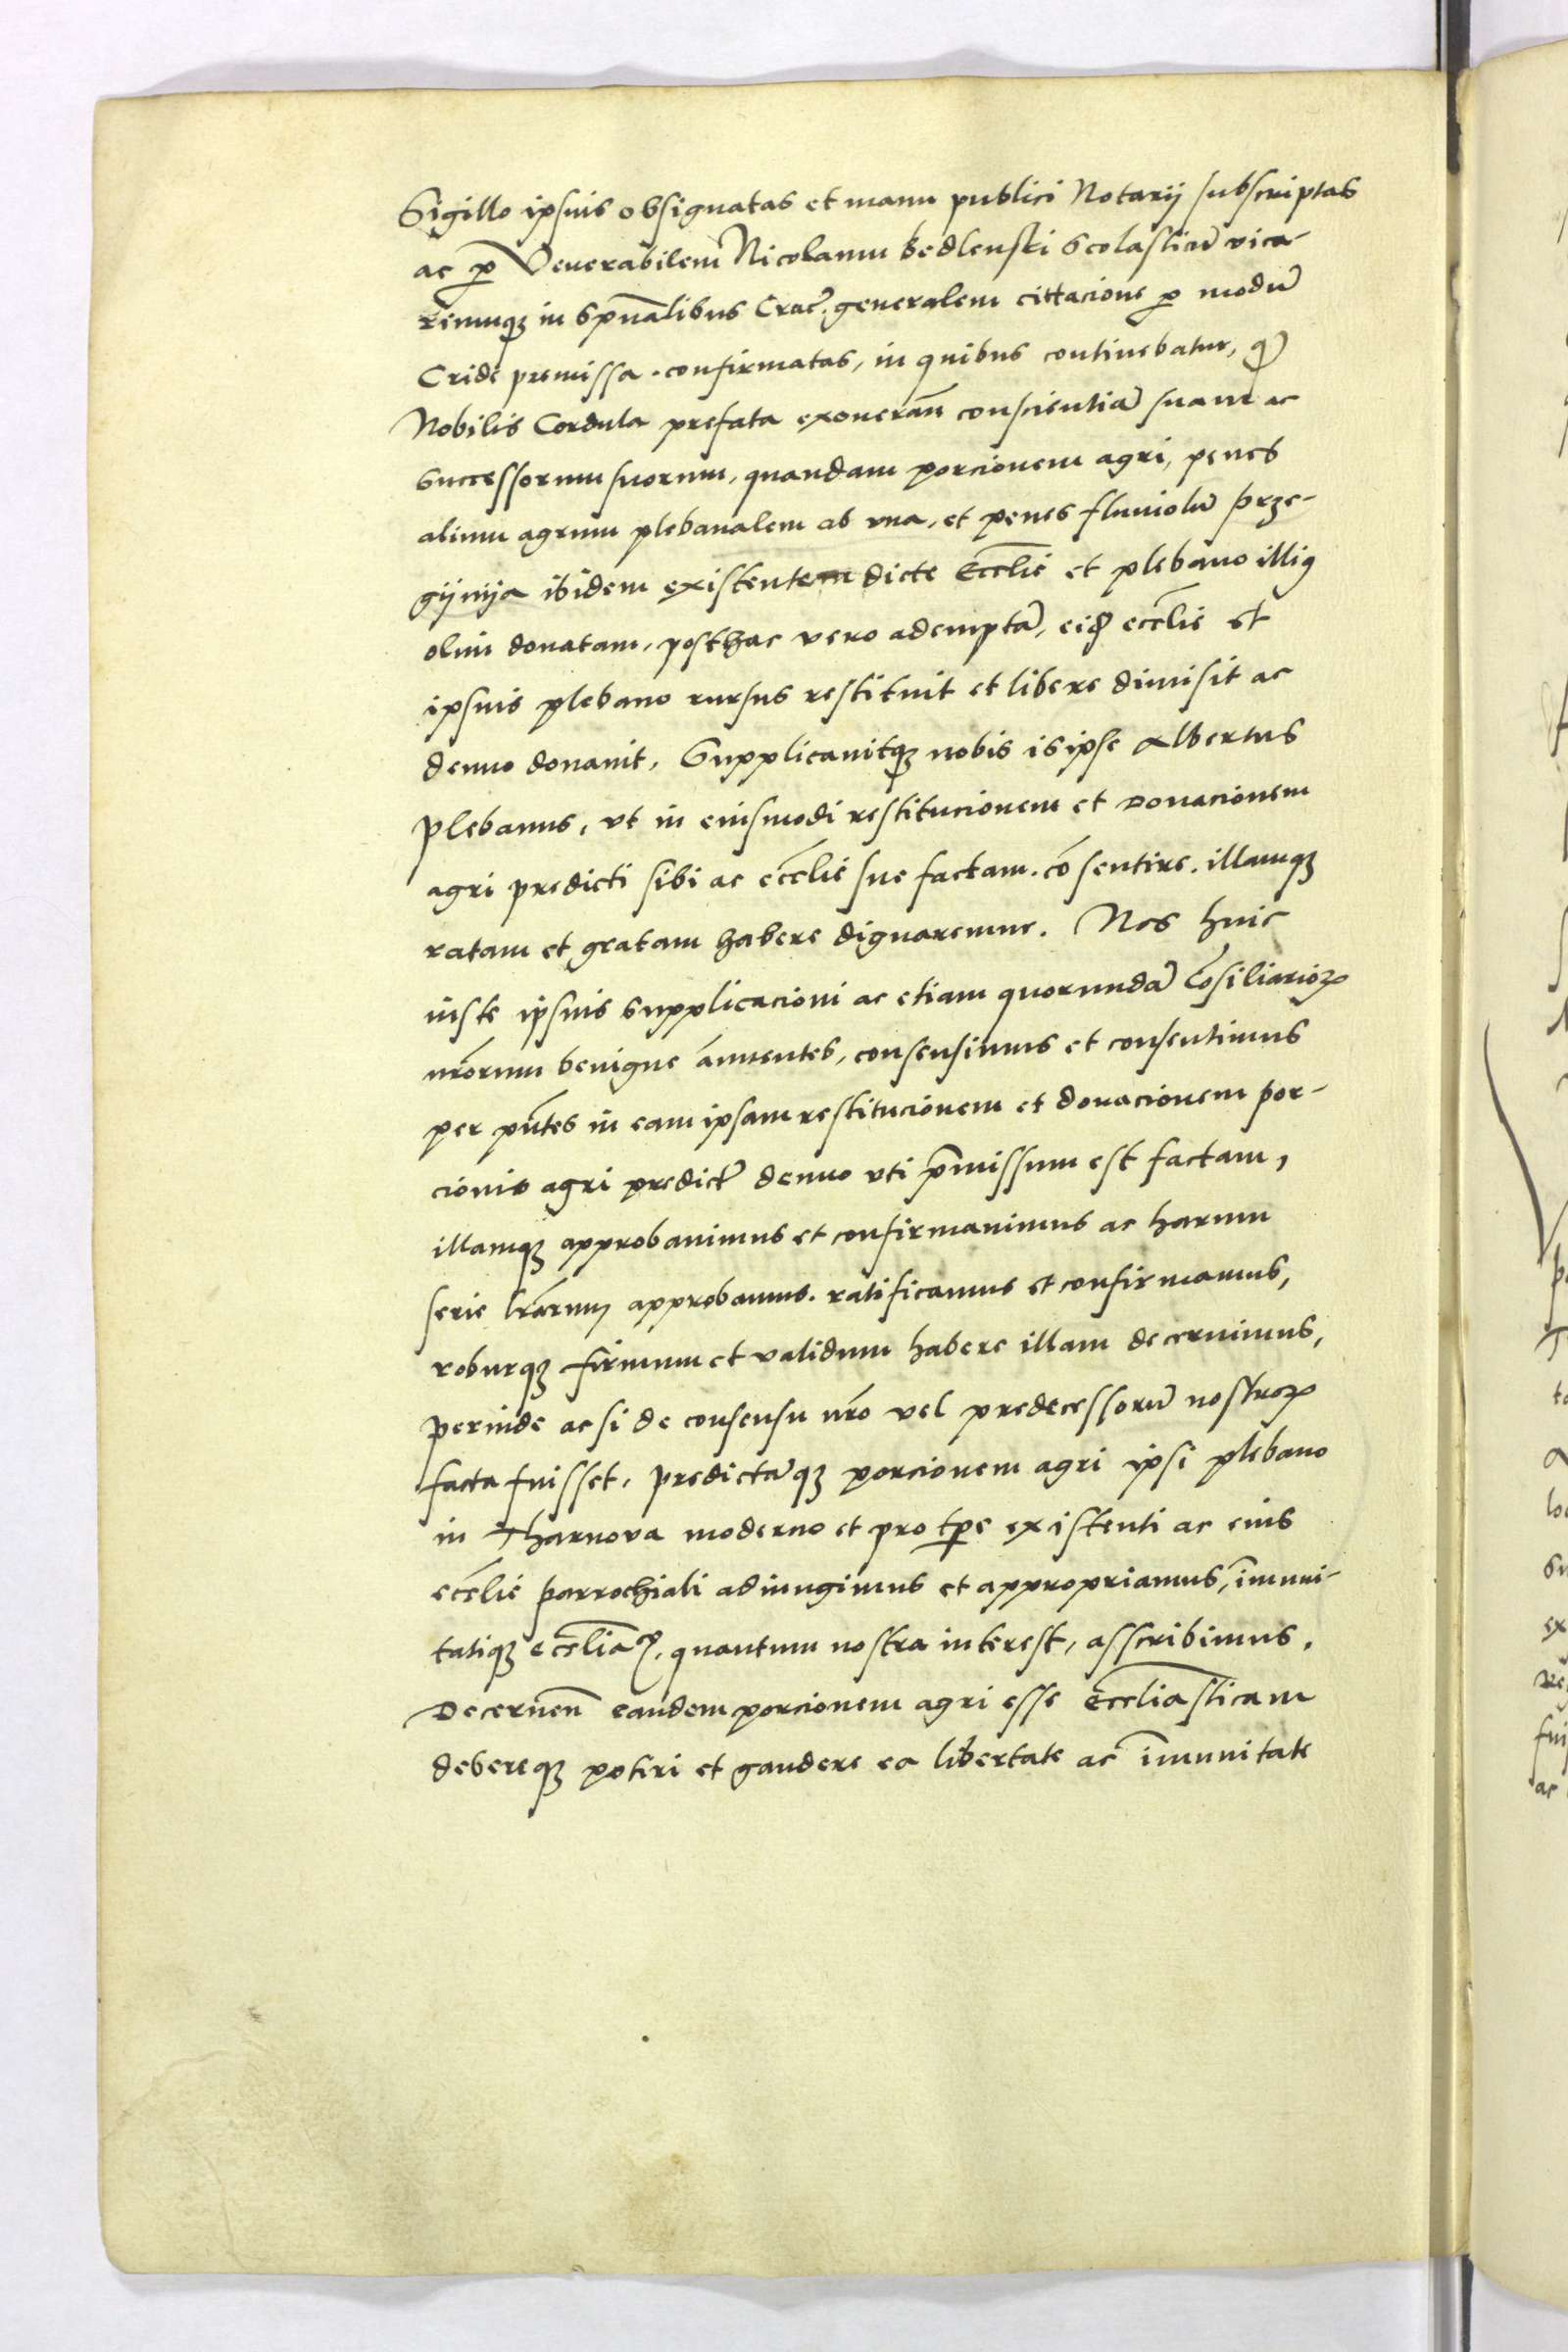 Sigillo ipsius obsignatas et manu publici Notarij subscriptas
ac p̱ Venerabilem Nicolaum Bedlenski Scolasticū vica-
riumq3 in Spūalibus Crac̄. generalem cittacione p̱ modū
Cride premissa. confirmatas, in quibus continebatur, qđ
Nobilis Cordula prefata exonerañ conscientiā suam ac
successorum suorum, quandam porcionem agri, penes
alium agrum plebanalem ab vna, et penes fluuiolū prze-
gÿnÿa ibidem existentem dicte Eccl̄ie et plebano illiꝯ
olim donatam, posthac vero ademptā, eiđ eccl̄ie et
ipsius plebano rursus restituit et libere dimisit ac
denuo donauit, Supplicauitq3 nobis is ipse Albertus
plebanus, vt in eiusmodi restitucionem et Donacionem
agri predicti sibi ac eccl̄ie sue factam. cōsentire. illamq3
ratam et gratam habere dignaremur. Nos huic
iuste ipsius supplicacioni ac etiam quorundā Cōsiliarioꝝ
nr̄orum benigne ānuentes, consensimus et consentimus
per pn̄tes in eam ipsam restitucionem et donacionem por-
cionis agri predictę denuo vti p̄missum est factam,
illamq3 approbauimus et confirmauimus ac harum
serie lr̄arum approbamus. ratificamus et confirmamus,
roburq3 firmum et validum habere illam decernimus,
perinde ac si de consensu nr̄o vel predecessorū nostroꝝ
facta fuisset, predictāq3 porcionem agri ipsi plebano
in Tharnova moderno et pro tp̄e existenti ac eius
eccl̄ie parrochiali adiungimus et appropriamus, im̄uni-
tatiq3 eccl̄iaꝝ, quantum nostra interest, asscribimus.
Decerneñ eandem porcionem agri esse eccl̄iasticam
debereq3 potiri et gaudere ea libertate ac im̄unitate